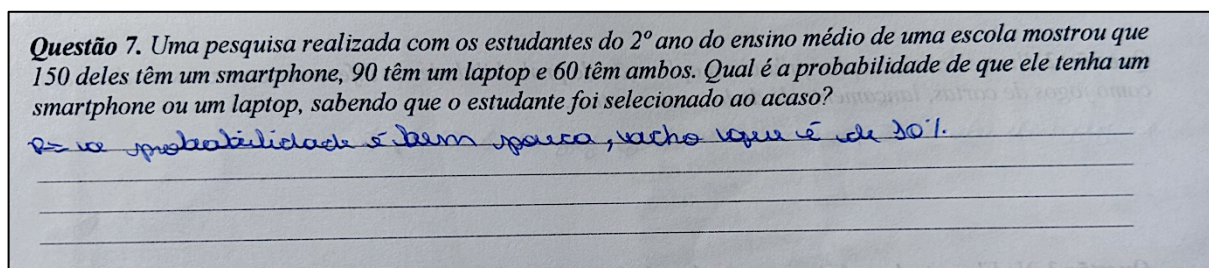 Questão 7. Uma pesquisa realizada com os estudantes do 2º ano do ensino médio de uma escola mostrou que
150 deles têm um smartphone, 90 têm um laptop e 60 têm ambos. Qual é a probabilidade de que ele tenha um
smartphone ou um laptop, sabendo que o estudante foi selecionado ao acaso?
R= a probabilidade é bem pouca, acho que é de 10%.